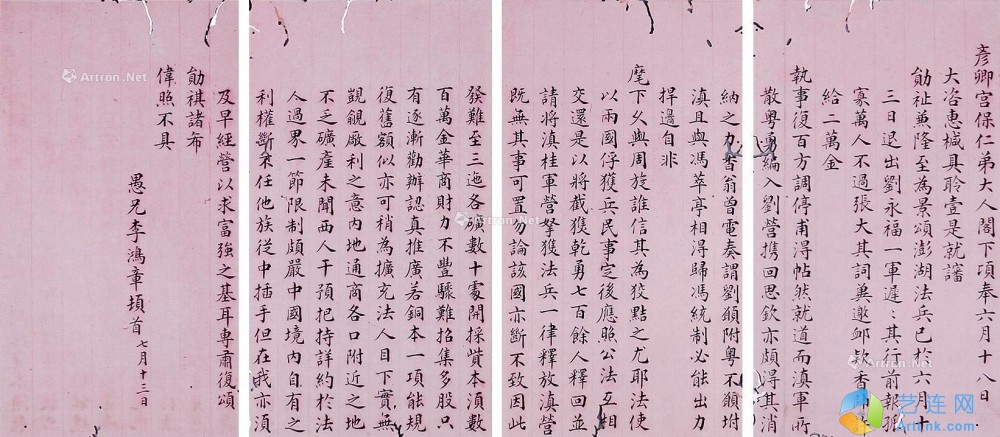 彥卿宮保仁弟大人閣下項奉六月十八日
大咨惠椷具聆壹是就讅
勛祉兼隆至為景頌澎湖法兵已於六月十
三日退出劉永福一軍遲遲其行前報張
寡萬人不過張大其詞冀邀卹欵香帥
給二萬金
執事復百方調停甫得帖然就道而滇軍所
散粤勇編入劉營携回思欽亦頗得其消
納之力香翁曾電奏謂劉願附粤不願坿
滇且與馮萃亭相得歸馮統制必能出力
捍邊自非
麾下久與周旋誰信其為狡黠之尤耶法使
以兩國俘獲兵民事定後應照公法互相
交還是以將截獲乾勇七百餘人釋回並
請將滇桂軍營拏獲法兵一律釋放滇營
既無其事可置勿論該國亦斷不致因此
發難至三迤各礦數十處開採貲本須數
百萬金華商財力不豐驟難招集多股只
有逐漸勸辦認真推廣若銅本一項能規
復舊額似亦可稍為擴充法人目下實無
覬覦廠利之意內地通商各口附近之地
不乏礦產未聞西人干預把持詳約於法
人過界一節限制頗嚴中國境內自有之
利權斷不任他族從中插手但在我亦須
及早經營以求富強之基耳專肅復頌
勛祺諸希
偉照不具
愚兄李鴻章頓首 七月十三日
Artron.Net
Artron.Net
Artron.Net
Artron.Net
艺连网
Artlink.com